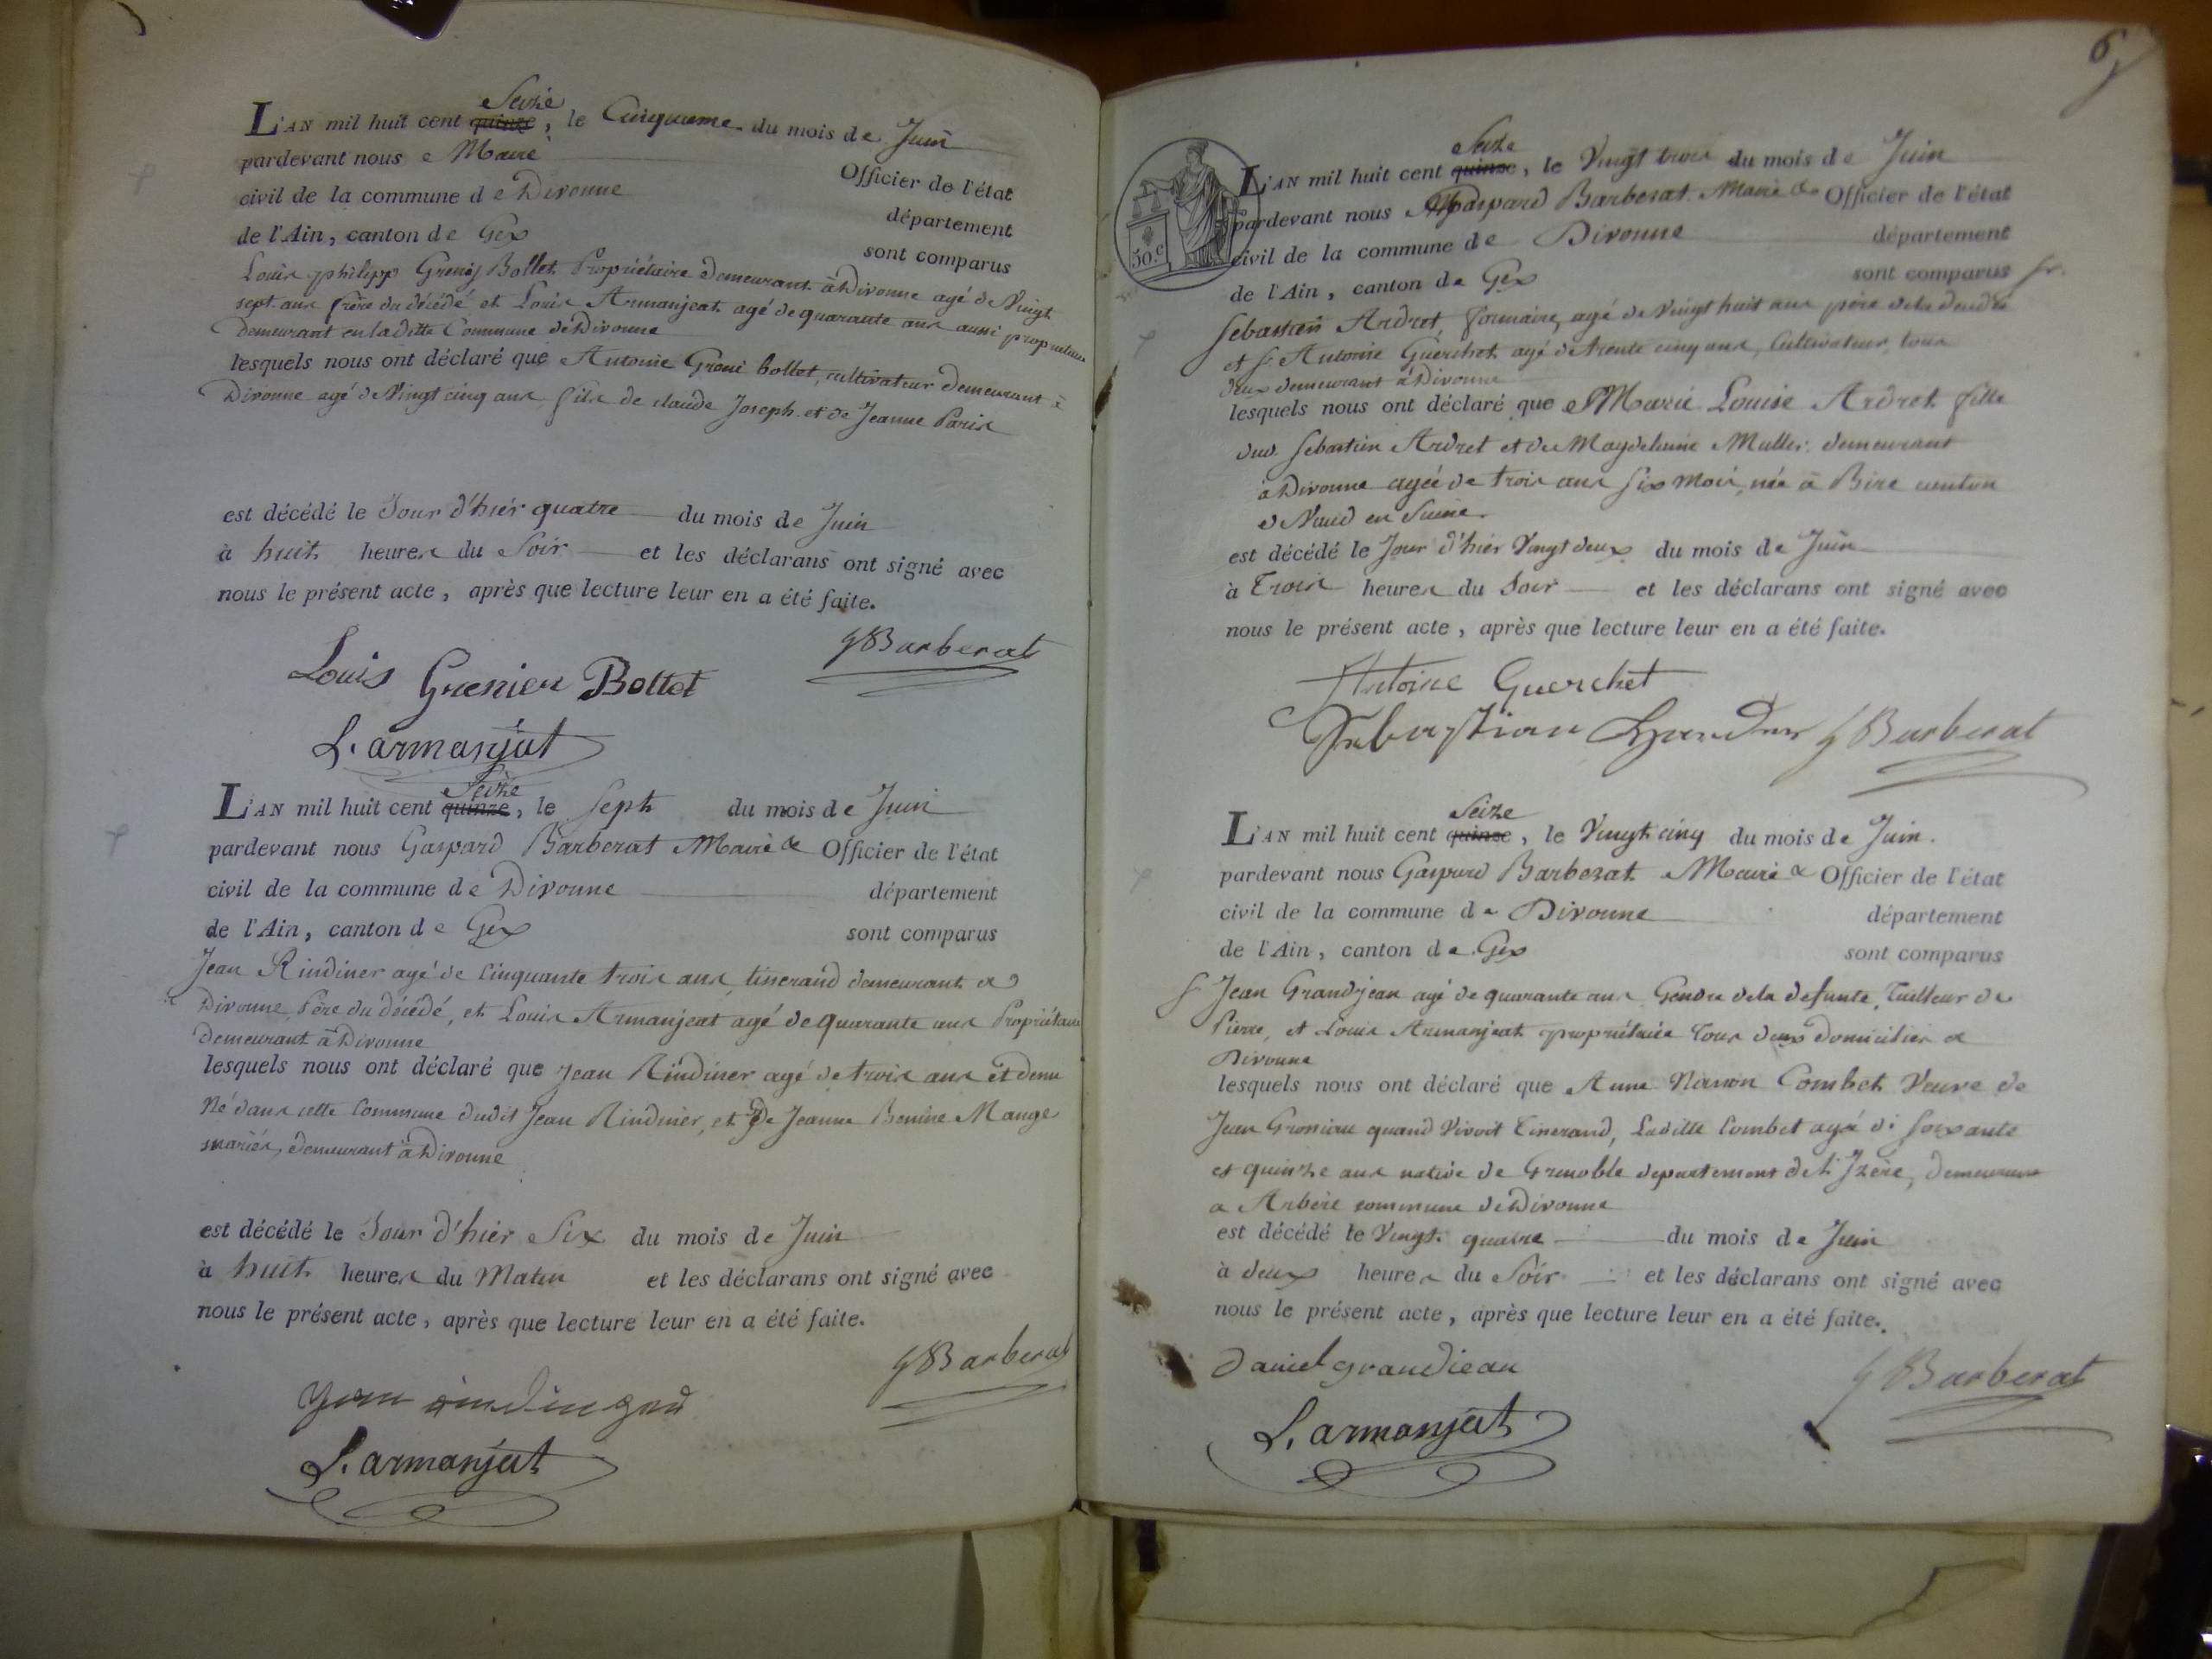 Seize
L'AN mil huit cent quinze, le Cinquieme du mois de Juin
pardevant nous Maire
Officier de l'état
civil de la commune de Divonne
département
de l'Ain, canton de Gex
sont comparus
Louis philipp Grenier Bollet Propriétaire demeurant à Divonne agé de Vingt
sept ans frère du décédé et Louis Armanjeat agé de quarante ans aussi propriétaire
demeurant en laditte Commune de Divonne
lesquels nous ont déclaré que Antoine Greni bollet, cultivateur demeurant à
Divonne agé de Vingt cinq ans fils de claude Joseph et de Jeanne Paris
est décédé le Jour d'hiér quatre du mois de Juin
à huit heures du Soir et les déclarans ont signé avec
nous le présent acte, après que lecture leur en a été faite.
GBarberat
Louis Grenier Bollet
L. armanjat
Seize
L'AN mil huit cent quinze, le Sept du mois de Juin
pardevant nous Gaspard Barberat Maire & Officier de l'état
civil de la commune de Divonne département
de l'Ain, canton de Gex sont comparus
Jean Rindiner agé de Cinquante trois ans tisserand demeurant a
Divonne, Père du décédé, et Louis Armanjeat agé de quarante ans Propriétaire
demeurant à Divonne
lesquels nous ont déclaré que Jean Rindiner agé de trois ans et demi
Né dans cette Commune dudit Jean Rindiner, et de Jeanne Mange
mariés, demeurant à Divonne
est décédé le Jour d'hiér Six du mois de Juin
à huit heures du Matin et les déclarans ont signé avec
nous le présent acte, après que lecture leur en a été faite.
GBarberat
L. armanjat
6
50.c
Seize
L'AN mil huit cent quinze, le Vingt trois du mois de Juin
pardevant nous Gaspard Barberat Maire & Officier de l'état
civil de la commune de Divonne département
de l'Ain, canton de Gex sont comparus Sr.
Sebastien Ardret, agé de Vingt huit ans père de la
et Sr Antoine Guerchet agé de trente cinq ans, Cultivateur, tous
deux demeurant à Divonne
lesquels nous ont déclaré que Marie Louise Ardret fille
dud. Sebastien Ardret et de Magdelaine Muller demeurant
à Divonne agée de trois ans six mois, née à Bire canton
de Vaud en Suisse.
est décédé le Jour d'hiér Vingt deux du mois de Juin
à Trois heures du Soir et les déclarans ont signé avec
nous le présent acte, après que lecture leur en a été faite.
Antoine Guerchet
Sebastian GBarberat
Seize
L'AN mil huit cent quinze, le Vingt cinq du mois de Juin.
pardevant nous Gaspard Barberat Maire & Officier de l'état
civil de la commune de Divonne département
de l'Ain, canton de Gex sont comparus
Sr Jean Grandjean agé de quarante ans Gendre dela defunte, Tailleur de
Pierre, et Louis Armanjeat propriétaire Tous deux domiciliés a
Divonne
lesquels nous ont déclaré que Anne Combet Veuve de
Jean quand Vivoit Tisserand, Laditte Combet agée de soixante
et quinze ans native de Grenoble departement de l'Izère, demeurant
a Arbère commune de Divonne
est décédé le Vingt quatre du mois de Juin
à deux heures du Soir et les déclarans ont signé avec
nous le présent acte, après que lecture leur en a été faite.
Daniel grandiean
GBarberat
L. armanjat